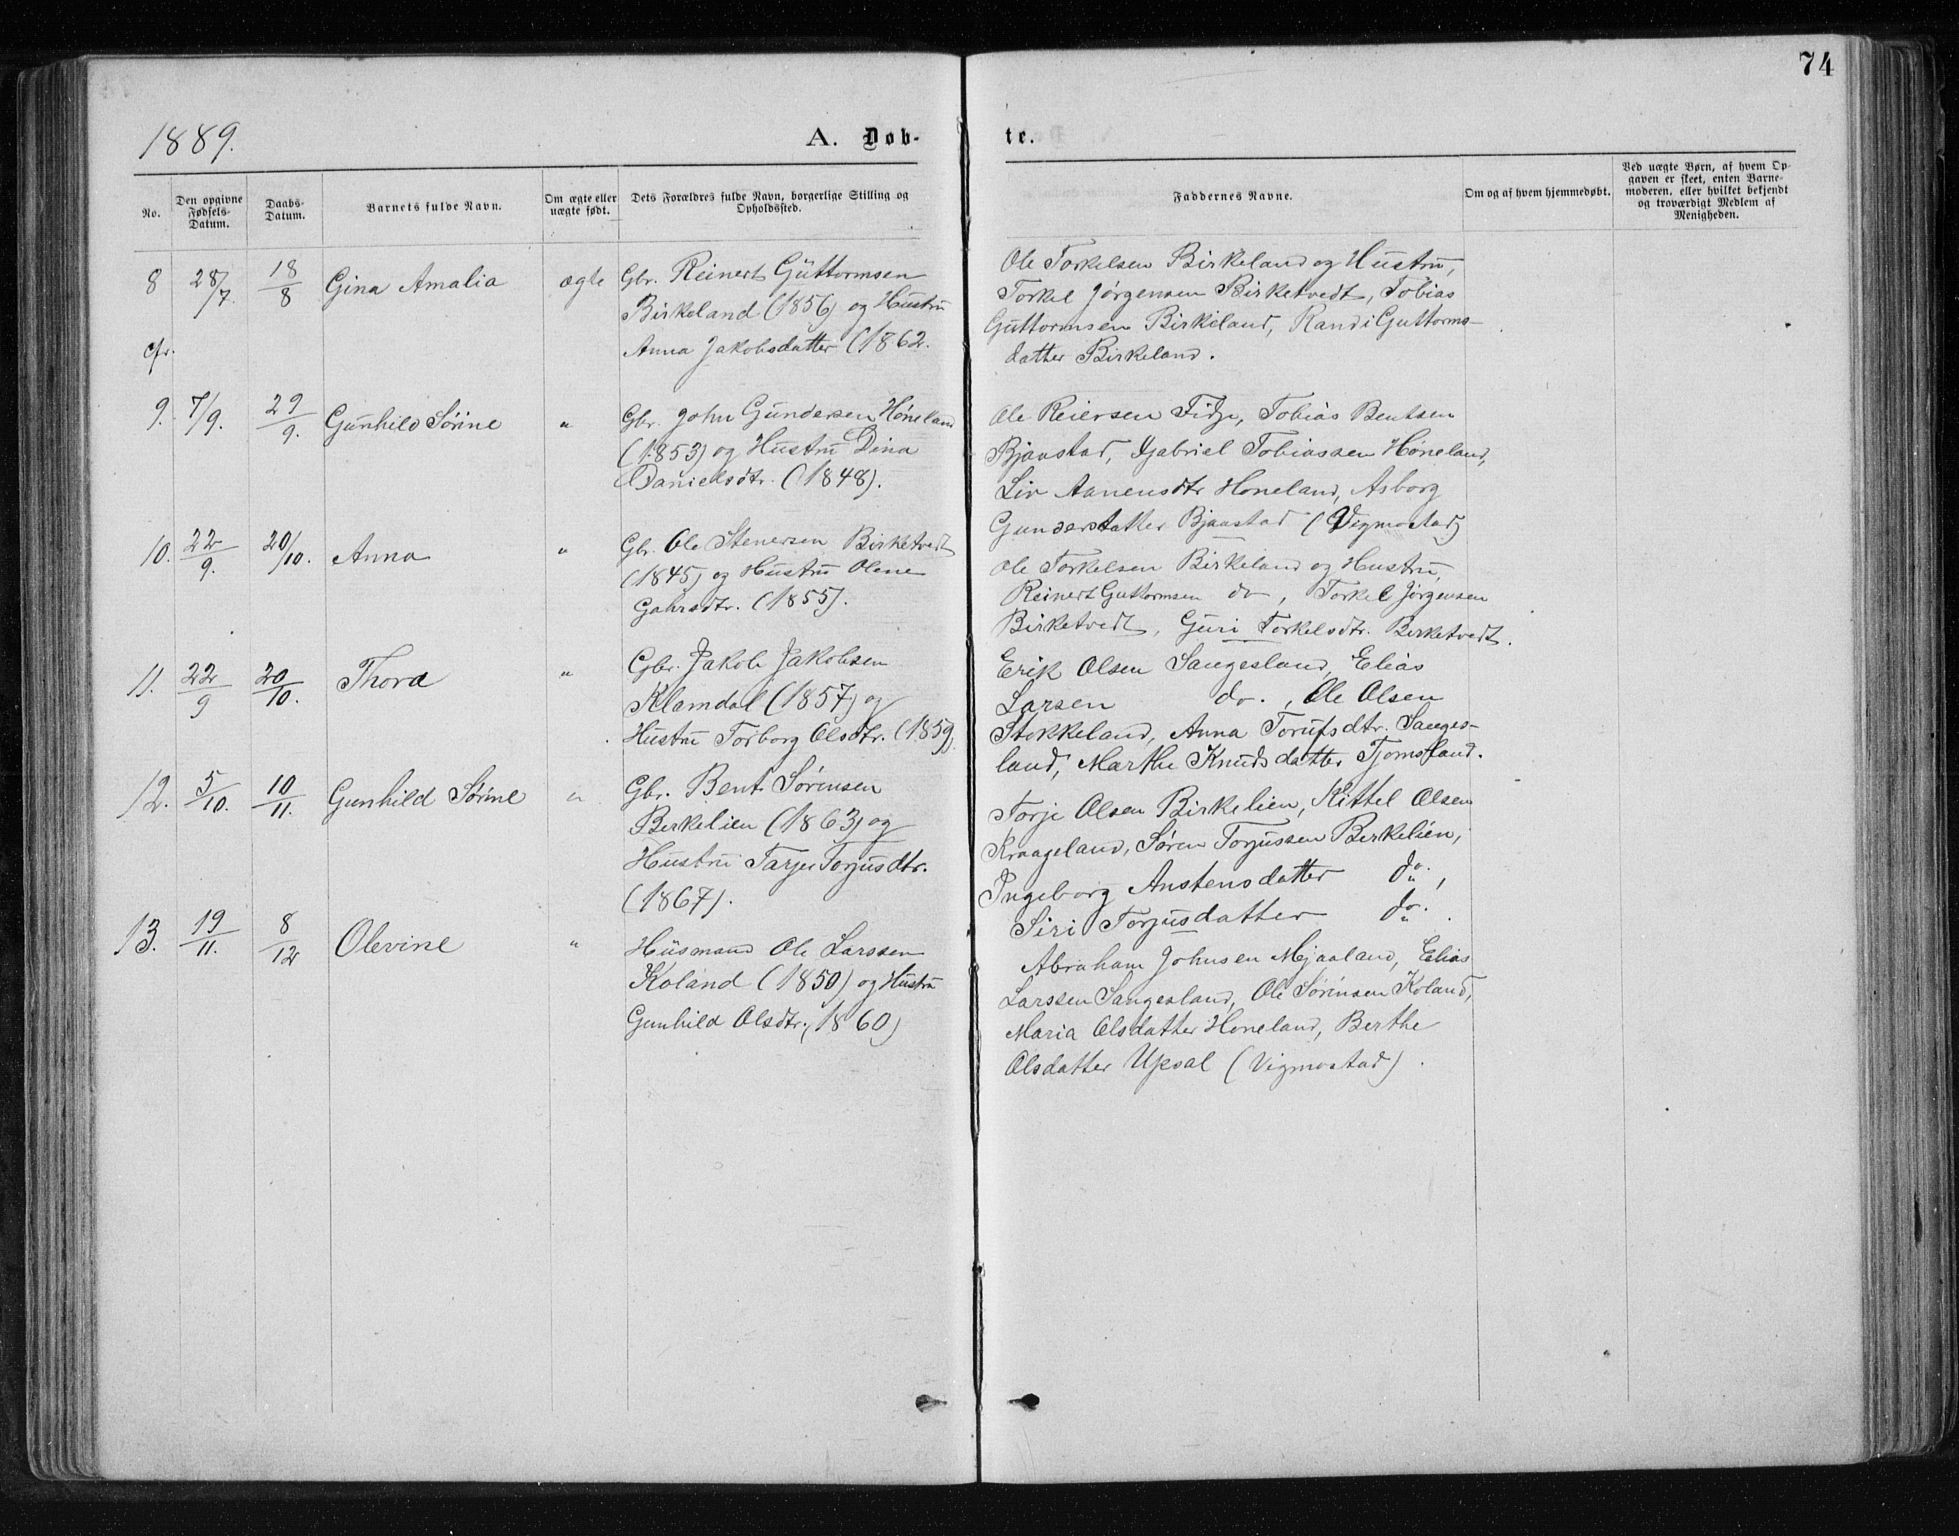 74
1889.
A. Døb-
te.
No.
Den opgivne Fødsels-Datum.
Daabs-Datum.
Barnets fulde Navn.
Om ægte eller uægte født.
Dets Forældres fulde Navn, borgerlige Stilling og Opholdssted.
Faddernes Navne.
Om og af hvem hjemmedøbt.
Ved uægte Børn, af hvem Op-
gaven er skeet, enten Barne-
moderen, eller hvilket bekjendt
og troværdigt Medlem af
Menigheden.
8 28/7 18/8 Gina Amalia ægte Gbr. Reinert Guttormsen
Birkeland (1856) og Hustru
Anna Jakobsdatter (1862.
Ole Torkelsen Birkeland og Hustru,
Torkel Jørgensen Birketvedt, Tobias
Guttormsen Birkeland, Randi Guttorms-
datter Birkeland.
cfr.
9. 7/9. 29/9. Gunhild Sørine " Gbr. John Gundersen Høneland
(1853) og Hustru Dina
Danielsdtr. (1848).
Ole Reiersen Fidje, Tobias Bentsen
Bjaastad, Gabriel Tobiassen Høneland,
Liv Aanensdtr Høneland, Asborg
Gundersdatter Bjaastad (Vigmostad)
10. 22/9. 20/10. Anna " Gbr. Ole Stenersen Birketvedt
(1845) og Hustru Olene
Gahrsdtr. (1855).
Ole Torkelsen Birkeland og Hustru,
Reinert Guttormsen do, Torkel Jørgensen
Birketvedt, Guri Torkelsdtr. Birketvedt.
11. 22/9 20/10. Thora " Gbr. Jakob Jakobsen
Klemdal (1857) og
Hustru Torborg Olsdtr. (1859).
Erik Olsen Sangesland, Elias
Larsen do., Ole Olsen
Stokkeland, Anna Torufsdtr. Sanges-
land, Marthe Knudsdatter Tjomsland.
12. 5/10. 10/11. Gunhild Sørine " Gbr. Bent Sørensen
Berkelien (1863) og
Hustru Tarjer Torjusdtr.
(1867).
Torje Olsen Birkelien, Kittel Olsen
Kraageland, Søren Torjussen Berkelien,
Ingeborg Anstensdatter do.,
Siri Torjusdatter do.
13. 19/11. 8/12 Olevine " Husmand Ole Larssen
Koland (1850) og Hustru
Gunhild Olsdtr. (1860)
Abraham Johnsen Mjaaland, Elias
Larssen Sangesland, Ole Sørensen Koland,
Maria Olsdatter Høneland, Berthe
Olsdatter Upsal (Vigmostad).